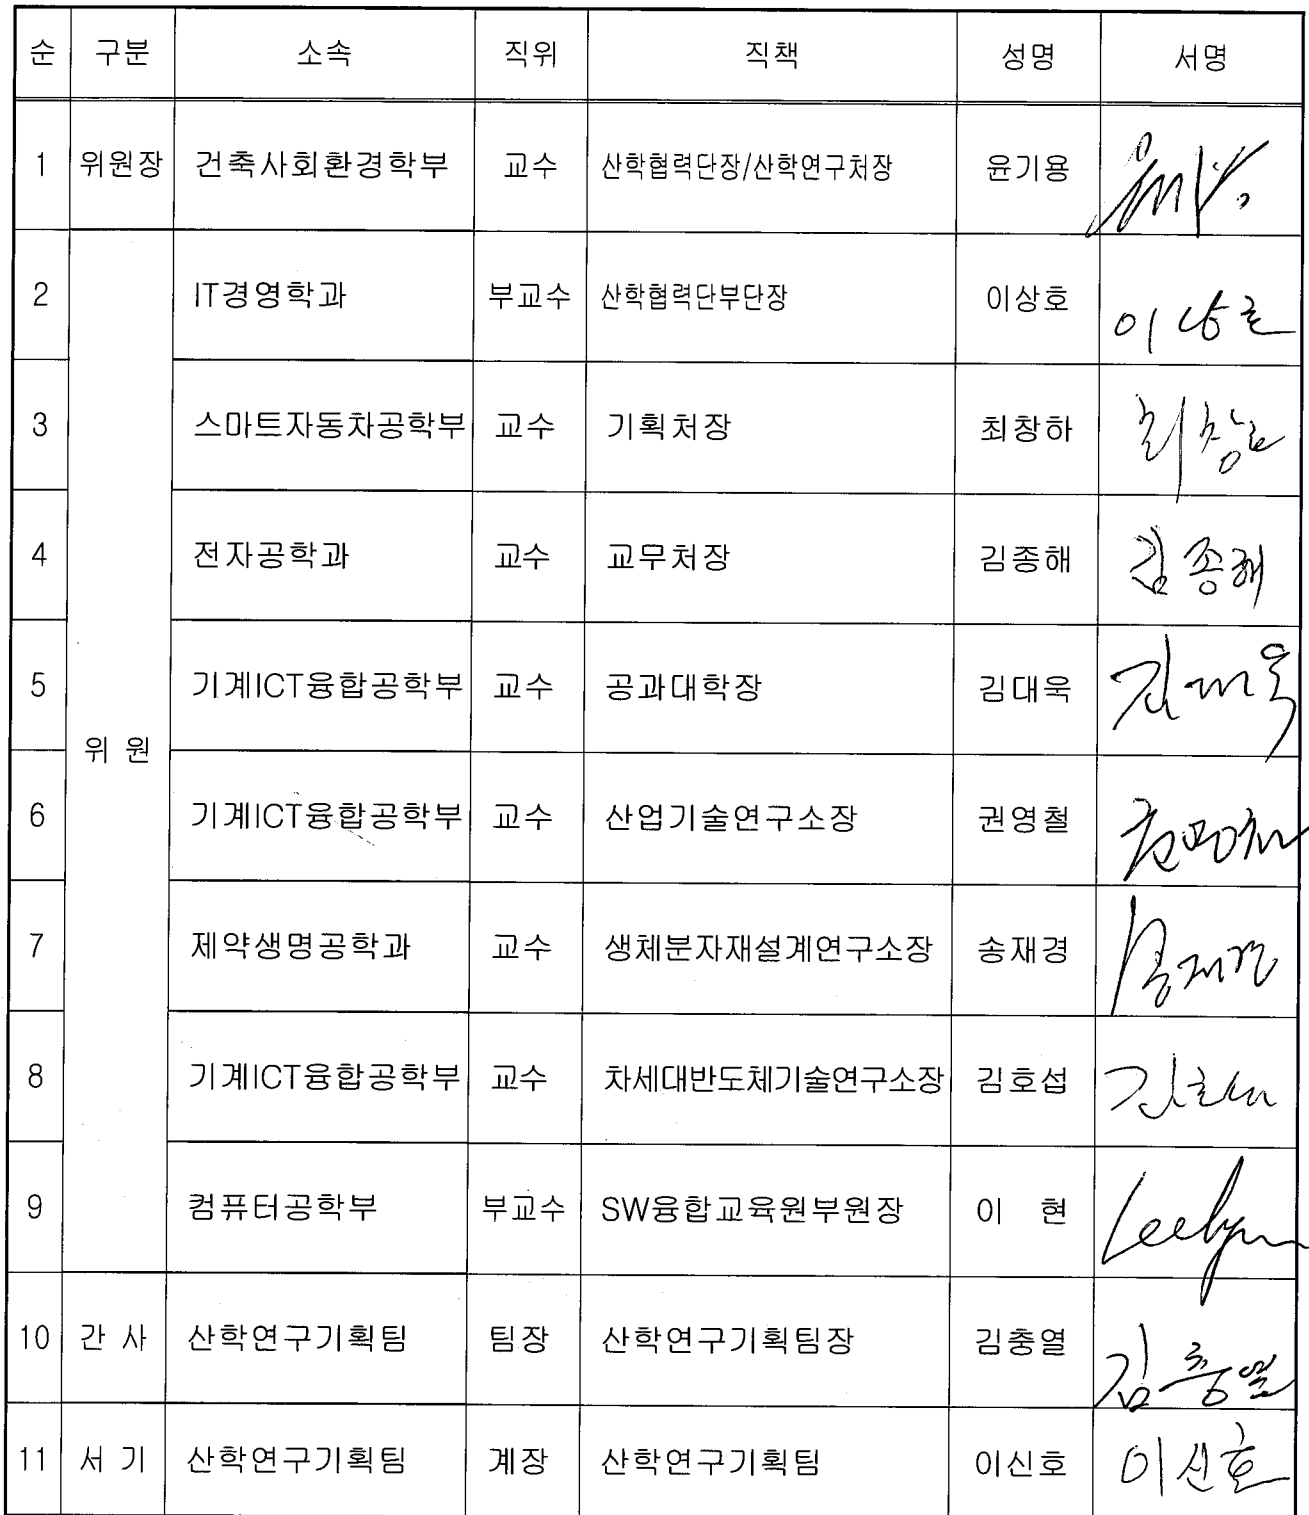 순 구분 소속 직위 직책 성명 서명
1 위원장 건축사회환경학부 교수 산학협력단장/산학연구처장 윤기용
2 IT경영학과 부교수 산학협력단부단장 이상호 이상호
3 스마트자동차공학부 교수 기획처장 최창하 최창하
4 전자공학과 교수 교무처장 김종해 김종해
5 기계ICT융합공학부 교수 공과대학장 김대욱 김대욱
위 원
6 기계ICT융합공학부 교수 산업기술연구소장 권영철 권영철
7 제약생명공학과 교수 생체분자재설계연구소장 송재경 송재경
8 기계ICT융합공학부 교수 차세대반도체기술연구소장 김호섭 김호섭
9 컴퓨터공학부 부교수 SW융합교육원부원장 이 현 Leehyun
10 간 사 산학연구기획팀 팀장 산학연구기획팀장 김충열 김충열
11 서 기 산학연구기획팀 계장 산학연구기획팀 이신호 이신호